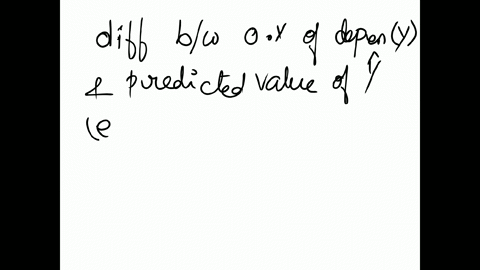 diff b/w o.v of depen(y)
& predicted value of ŷ
(e